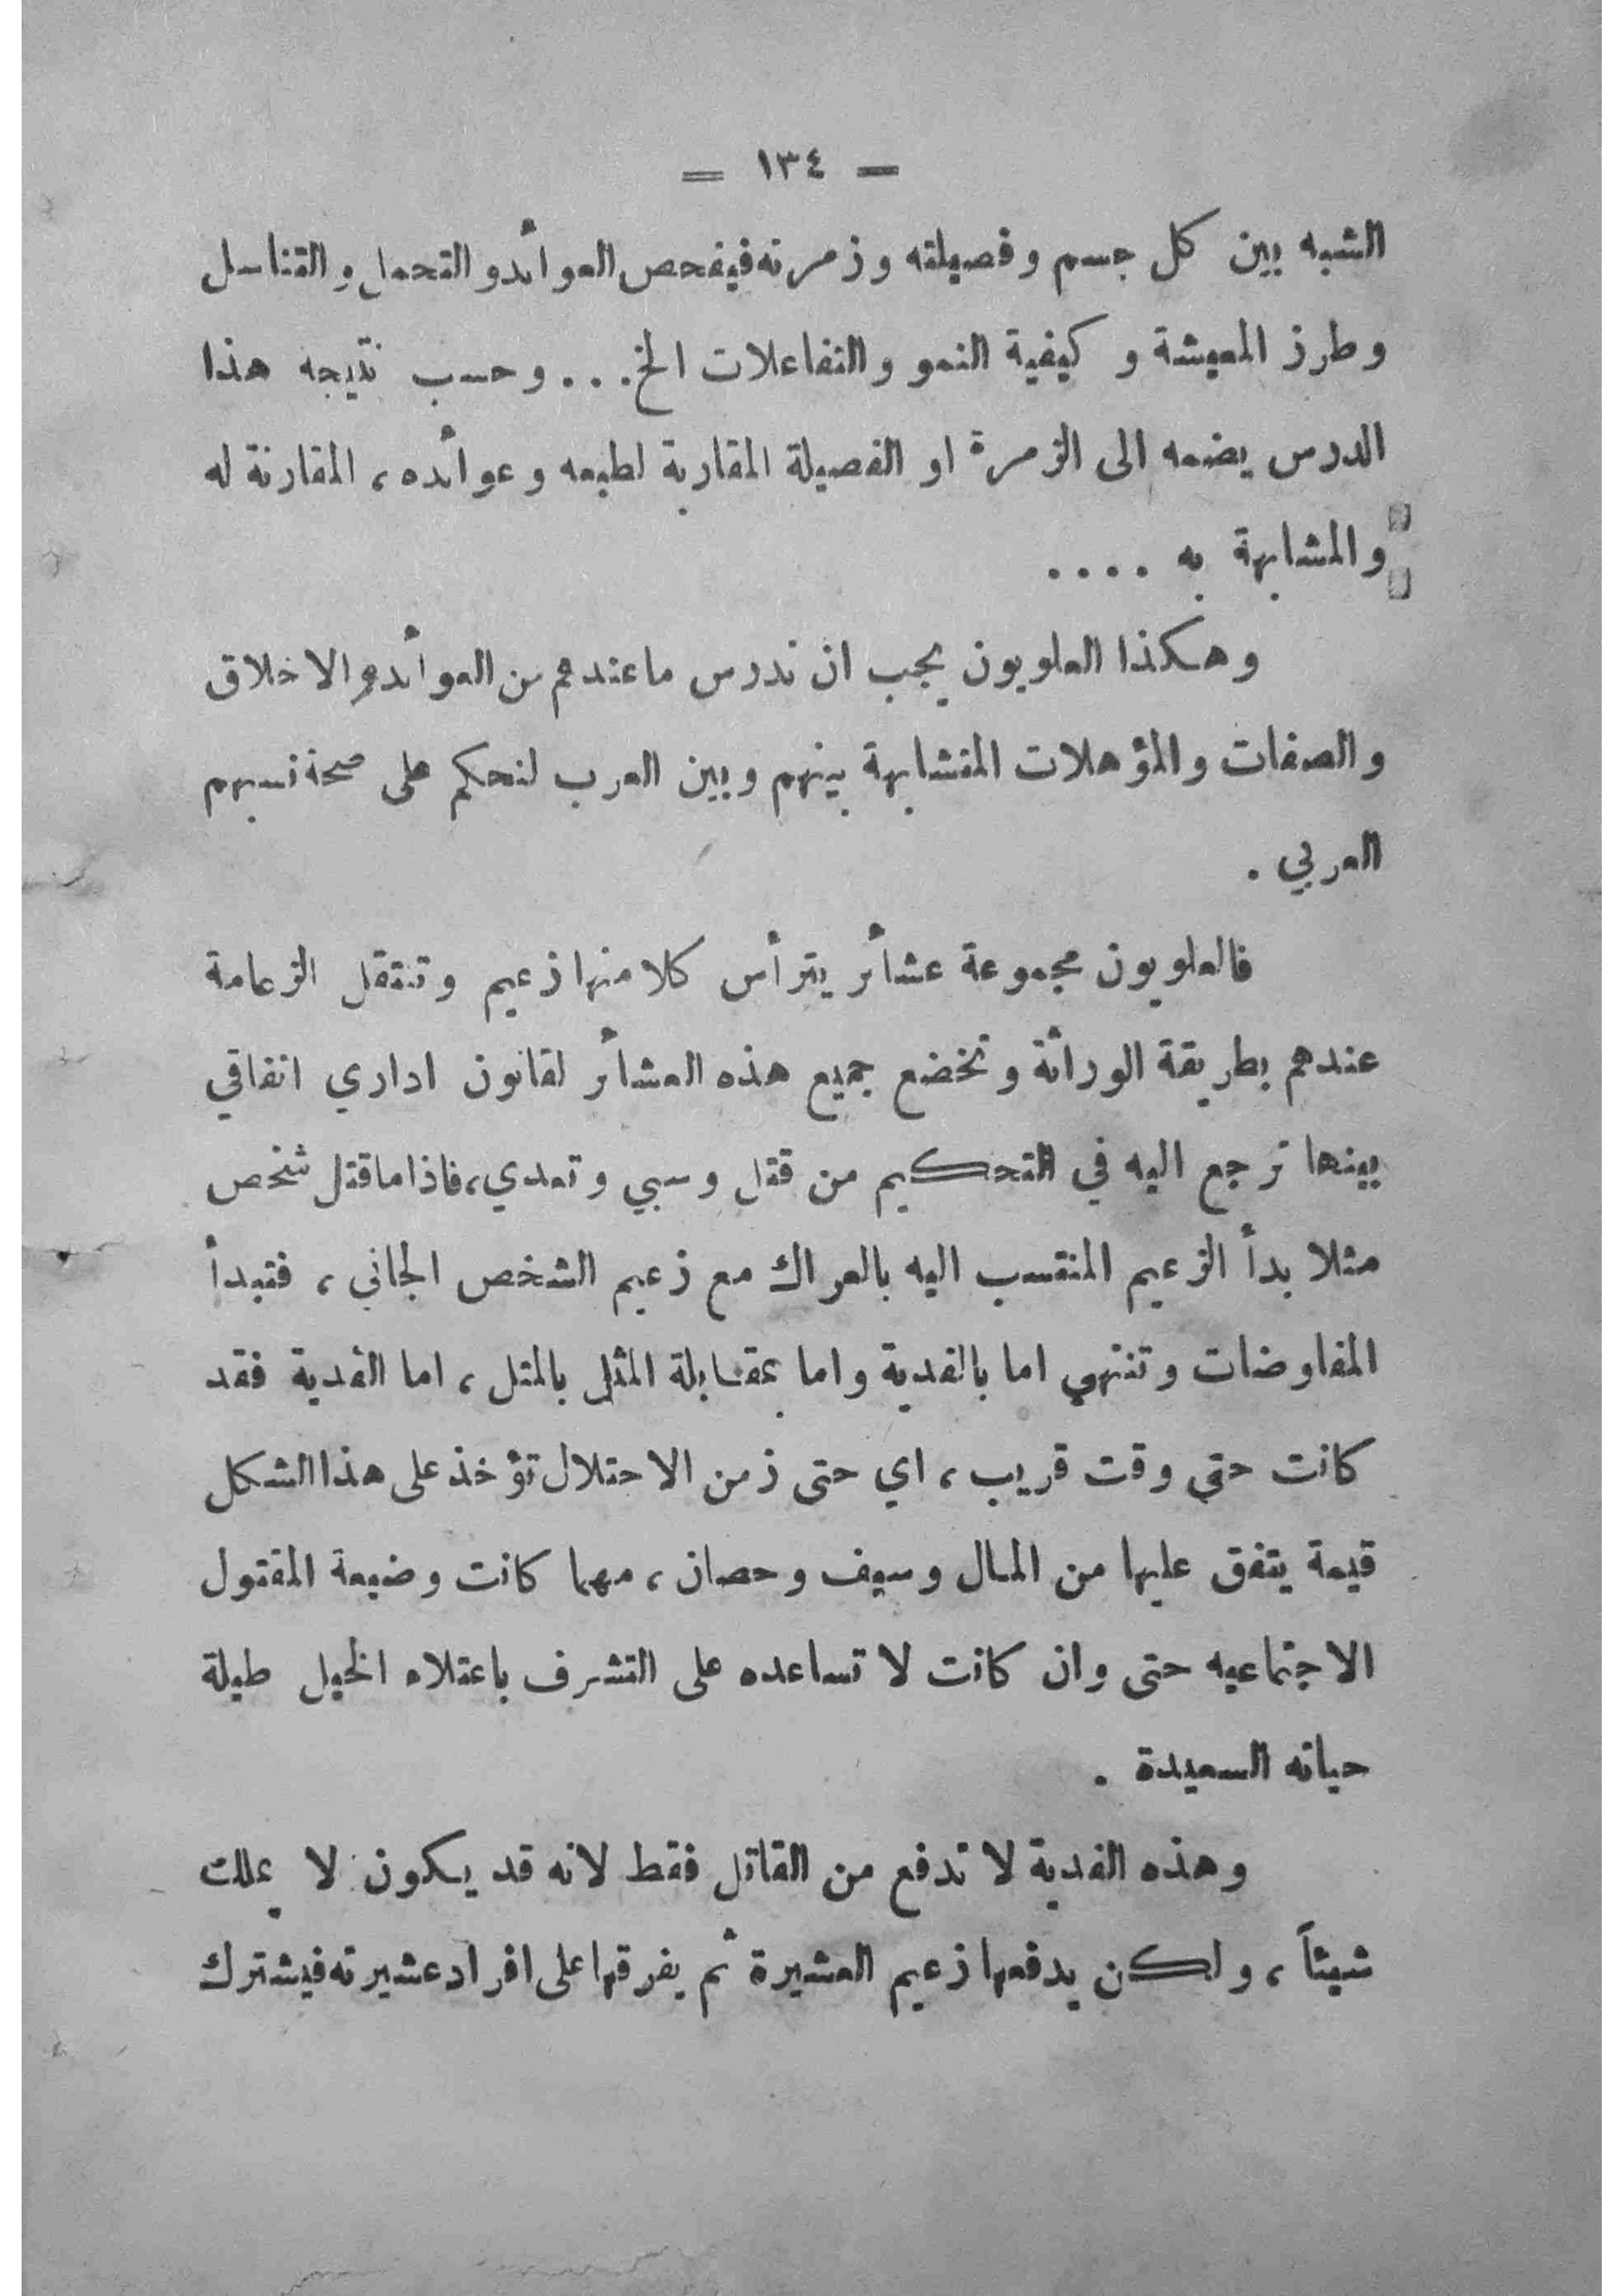 — ١٣٤ —
الشبه بين كل جسم وفصيلته وزمرته فيفحص العوائد والتحمل والتناسل
وطرز المعيشة وكيفية النمو والتفاعلات الخ... وحسب نتيجه هذا
الدرس يضمه الى الزمرة او الفصيلة المقاربة لطبعه وعوائده، المقارنة له
والمشابهة به ....
وهكذا العلويون يجب ان ندرس ما عندهم من العوائد والاخلاق
والصفات والمؤهلات المتشابهة بينهم وبين العرب لنحكم على صحة نسبهم
العربي .
فالعلويون مجموعة عشائر يترأس كلا منها زعيم وتنتقل الزعامة
عندهم بطريقة الوراثة وتخضع جميع هذه العشائر لقانون اداري اتفاقي
بينها ترجع اليه في التحكيم من قتل وسبي وتعدي، فاذا ما قتل شخص
مثلا بدأ الزعيم المنتسب اليه بالعراك مع زعيم الشخص الجاني، فتبدأ
المفاوضات وتنتهي اما بالفدية واما بمقابلة المثل بالمثل، اما الفدية فقد
كانت حتى وقت قريب، اي حتى زمن الاحتلال تؤخذ على هذا الشكل
قيمة يتفق عليها من المال وسيف وحصان، مهما كانت وضيعة المقتول
الاجتماعيه حتى وان كانت لا تساعده على التشرف باعتلاء الخيل طيلة
حياته السعيدة .
وهذه الفدية لا تدفع من القاتل فقط لانه قد يكون لا يملك
شيئاً، ولكن يدفعها زعيم العشيرة ثم يفرقها على افراد عشيرته فيشترك